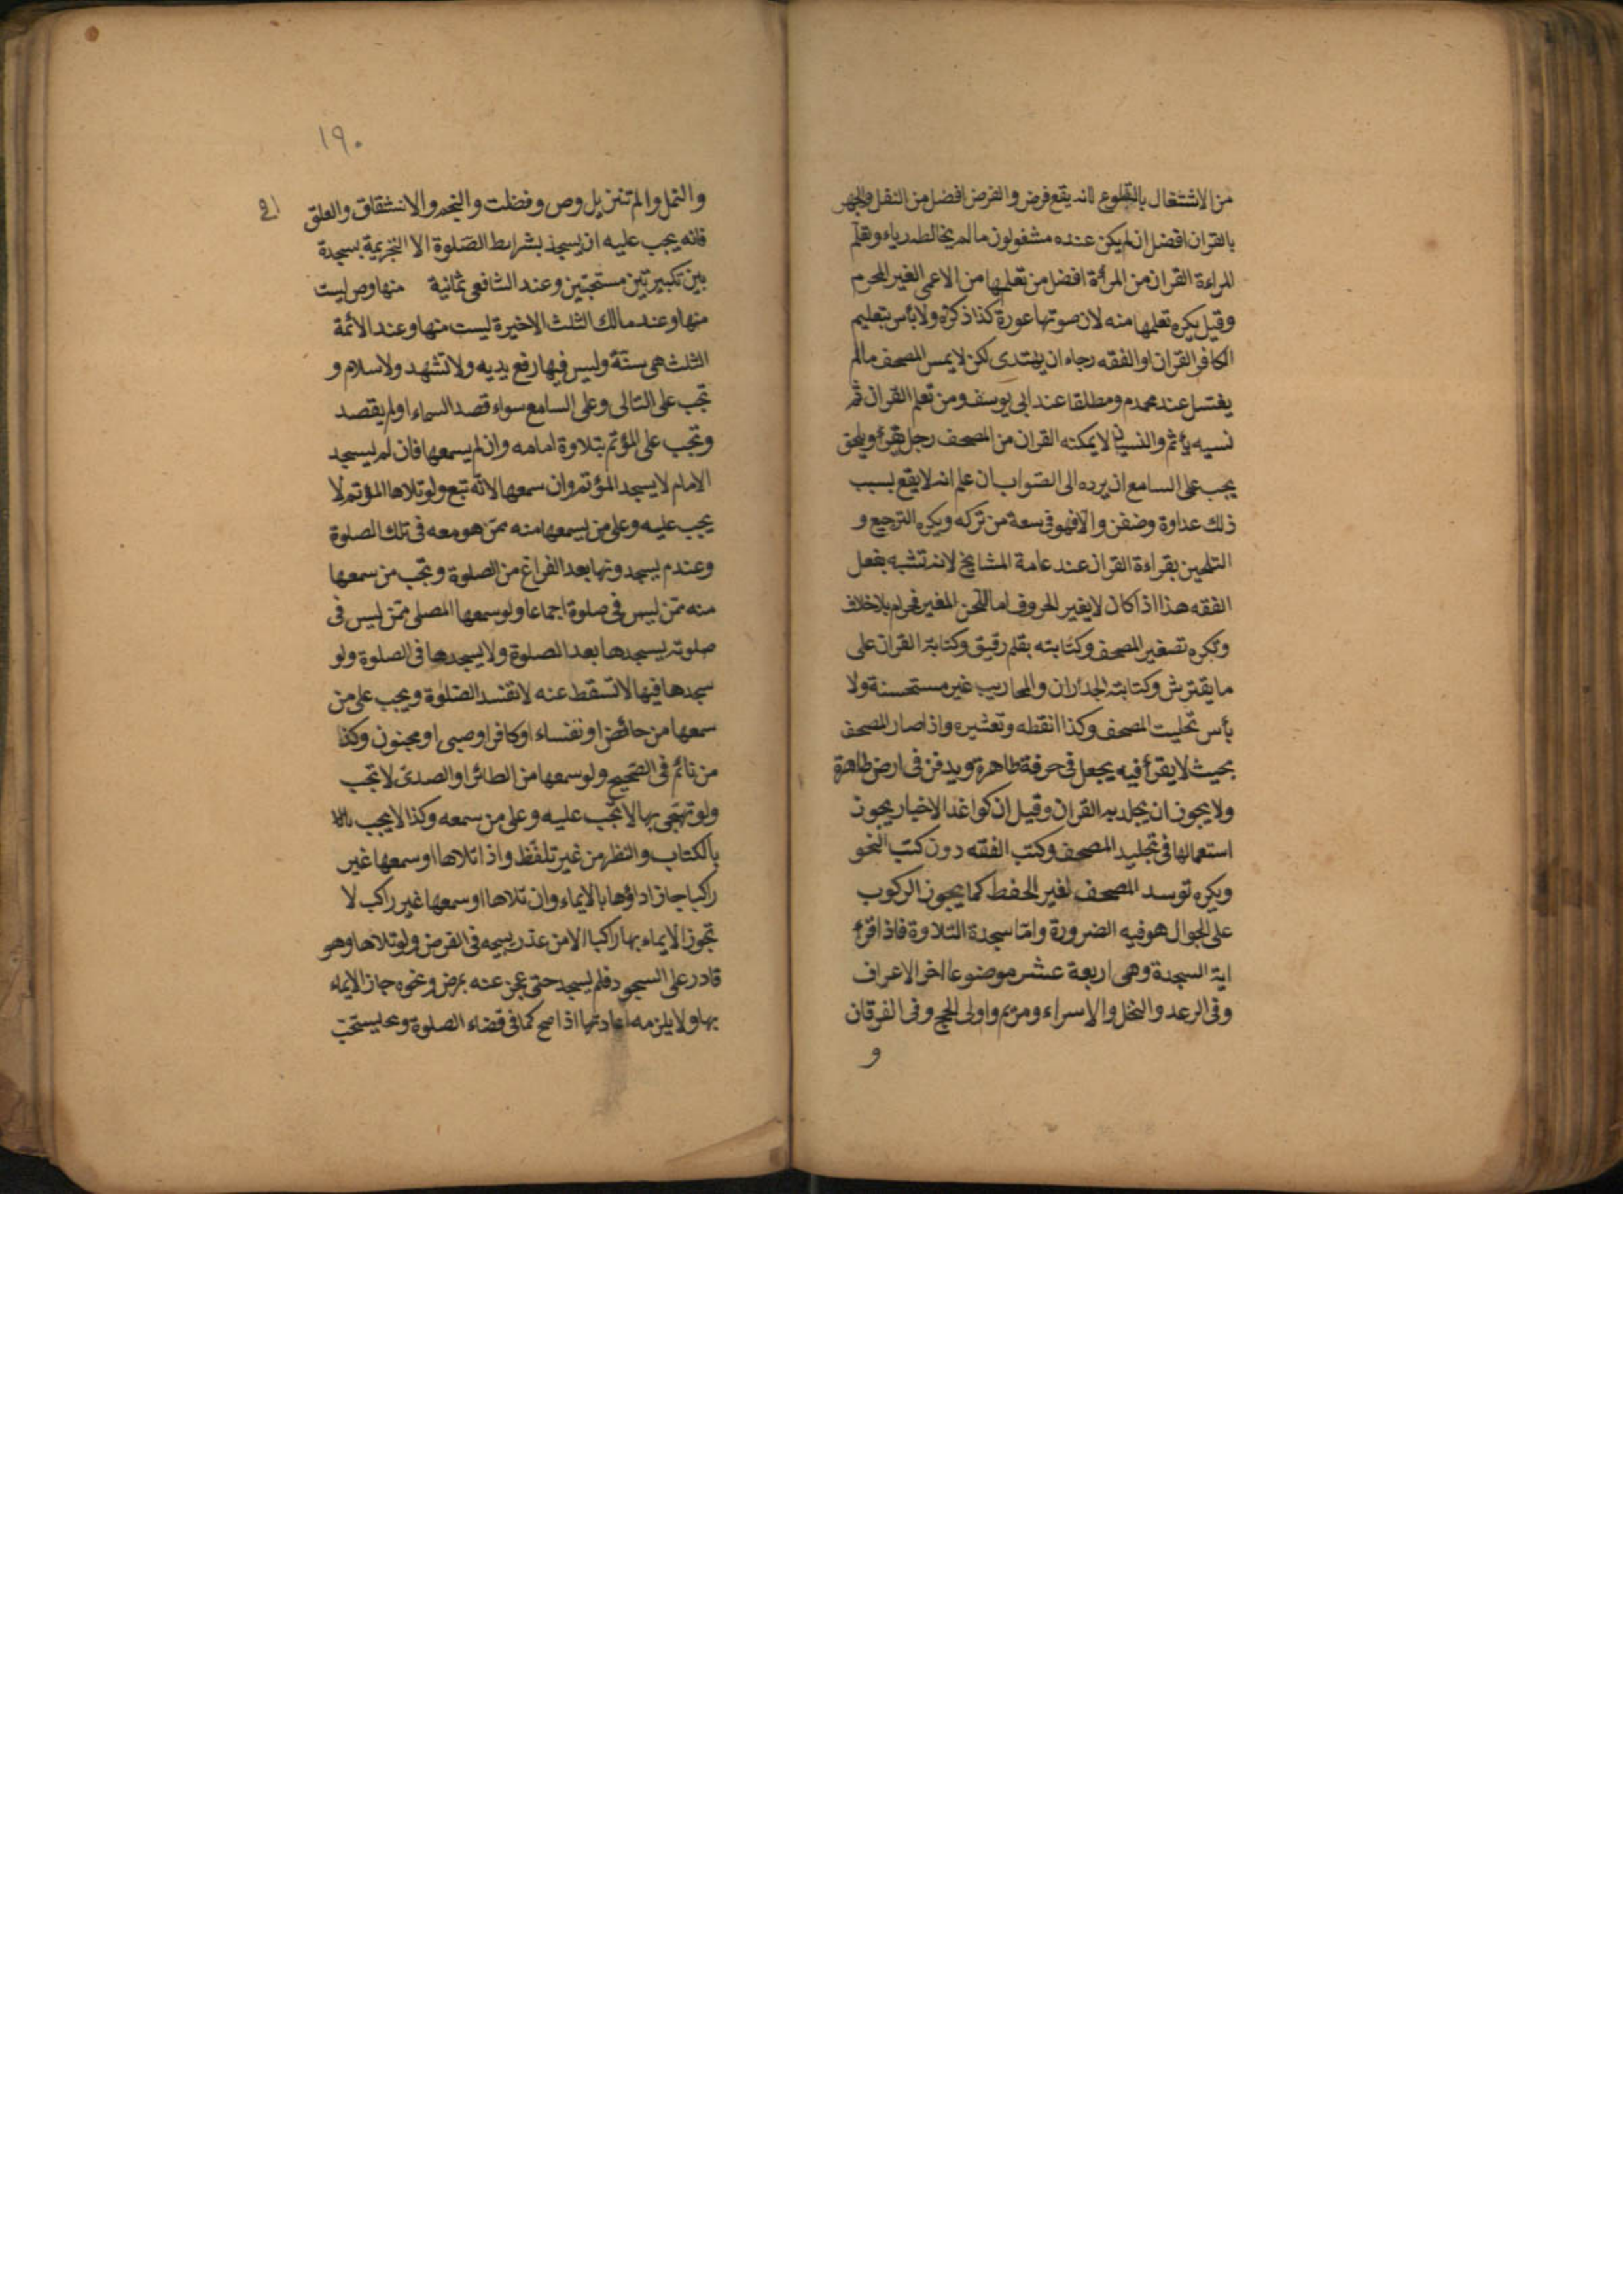 من الاشتغال بالتطوع لانه يقع فرض والفرض افضل من النفل والجهر
بالقران افضل ان لم يكن عنده مشغولون ما لم يخالطه رياء وتعلم
المراءة القران من المرأة افضل من تعلمها من الاعمى الغير المحرم
وقيل يكره تعلمها منه لان صوتها عورة كذا ذكره ولا بأس بتعليم
الكافر القران او الفقه رجاء ان يهتدى لكن لا يمس المصحف ما لم
يغتسل عند محمد م ومطلقا عند ابى يوسف ومن تعلم القران ثم
نسيه يأثم والنسيان لا يمكنه القران من المصحف رجل يقرأ ويلحن
يجب على السامع ان يرده الى الصواب ان علم انه لا يقع بسبب
ذلك عداوة وضغن والا فهو فى سعة من تركه ويكره الترجيع و
التلحين بقراءة القران عند عامة المشايخ لانه تشبه بفعل
الفقه هذا اذا كان لا يغير الحروف اما اللحن المغير فحرام بلا خلاف
وتكره تصغير المصحف وكتابته بقلم رقيق وكتابة القران على
ما يفترش وكتابته الجدران والمحاريب غير مستحسنة ولا
بأس تحليت المصحف وكذا نقطه وتعشيره واذا صار المصحف
بحيث لا يقرأ فيه يجعل فى خرقة طاهرة ويدفن فى ارض طاهرة
ولا يجوز ان يجلد به القران وقيل ان كواغد الاخبار يجوز
استعمالها فى تجليد المصحف وكتب الفقه دون كتب النحو
ويكره توسد المصحف لغير الحفظ كما يجوز الركوب
على الجوال هو فيه الضرورة واما سجدة التلاوة فاذا قرئ
اية السجدة وهى اربعة عشر موضوعا اخر الاعراف
وفى الرعد والنحل والاسراء ومريم واولى الحج وفى الفرقان
و
١٩٠
والنمل والم تنزيل وص وفصلت والنجم والانشقاق والعلق
فانه يجب عليه ان يسجد بشرايط الصلوة الا التحريمة بسجدة
بين تكبيرتين مستحبتين وعند الشافعى ثمانية منها وص ليست
منها وعند مالك الثلث الاخيرة ليست منها وعند الائمة
الثلث هى سنة وليس فيها رفع يديه ولا تشهد ولا سلام و
تجب على التالى وعلى السامع سواء قصد السماء او لم يقصد
وتجب على المؤتم بتلاوة امامه وان لم يسمعها فان لم يسجد
الامام لا يسجد المؤتم وان سمعها لانه تبع ولو تلاها المؤتم لا
يجب عليه وعلى من يسمعها منه ممن هو معه فى تلك الصلوة
وعند م يسجدونها بعد الفراغ من الصلوة وتجب من سمعها
منه ممن ليس فى صلوة اجماعا ولو سمعها المصلى ممن ليس فى
صلوته يسجدها بعد الصلوة ولا يسجدها فى الصلوة ولو
سجدها فيها لا تسقط عنه لا تفسد الصلوة ويجب على من
سمعها من حائض او نفساء او كافر او صبى او مجنون وكذا
من نائم فى الصحيح ولو سمعها من الطائر او الصدى لا تجب
ولو تهجى بها لا تجب عليه وعلى من سمعه وكذا لا يجب
بالكتاب والنظر من غير تلفظ واذا تلاها او سمعها غير
راكبا جاز اداؤها بالايماء وان تلاها او سمعها غير راكب لا
تجوز الايماء بها راكبا الا من عذر يبيحه فى الفرض ولو تلاها وهو
قادر على السجود فلم يسجد حتى عجز عنه بمرض ونحوه جاز الايماء
بها ولا يلزمه اعادتها اذا صح كما فى قضاء الصلوة ويستحب